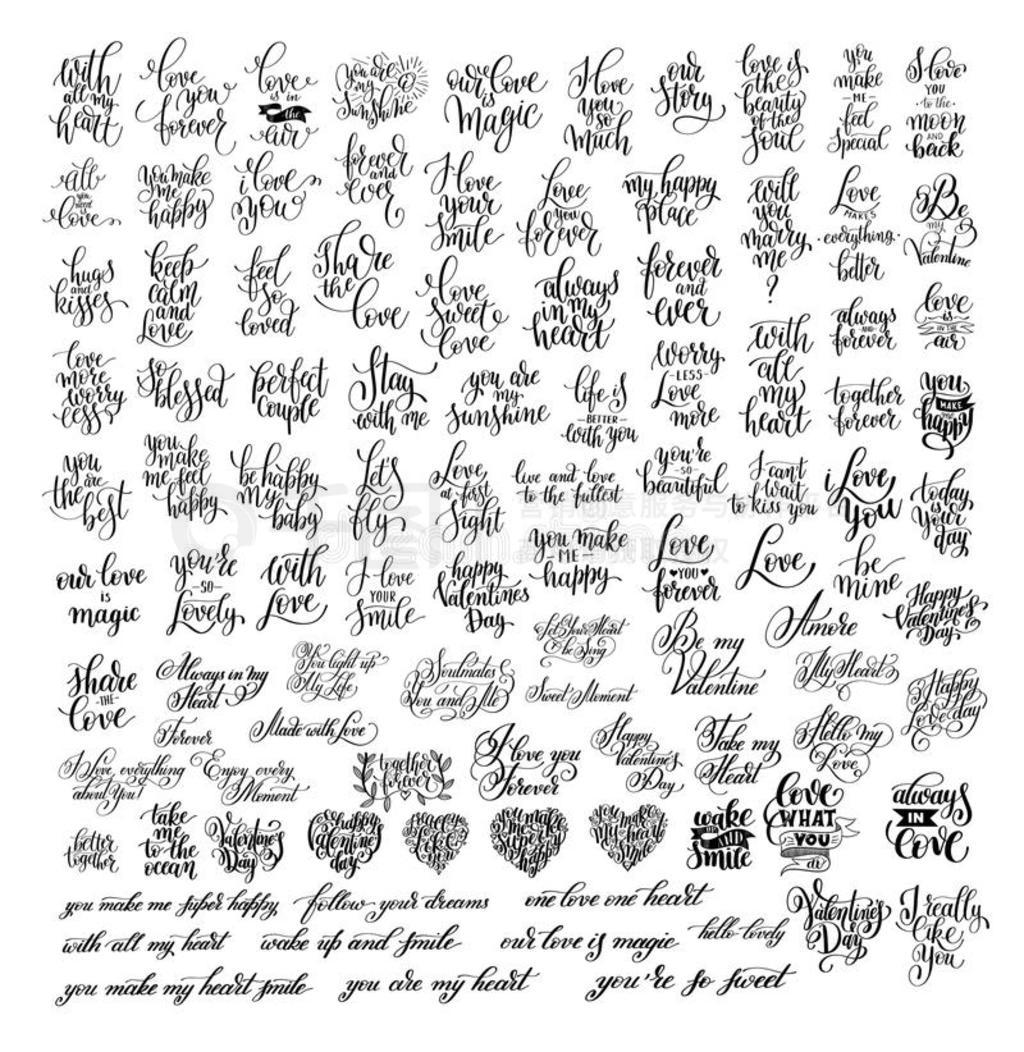 with
all my
heart
love
you
forever
love
is in
the
air
you are
my
Sunshine
our love
is
Magic
I love
you
so
Much
our
story
love is
the
beauty
of the
soul
you
make
ME
feel
Special
I love
YOU
to the
moon
AND
back
all
you need
love
you make
me
happy
i love
you
forever
and
ever
I love
your
Smile
Love
you
forever
my happy
place
will
you
marry
me
?
Love
MAKES
everything
better
Be
my
Valentine
hugs
and
kisses
keep
calm
and
Love
feel
so
loved
Share
the
love
love
Sweet
love
always
in my
heart
forever
and
ever
with
all
my
heart
always
AND
forever
love
is
IN THE
air
love
more
worry
less
so
blessed
perfect
couple
Stay
with me
you are
my
sunshine
life is
BETTER
with you
worry
LESS
Love
more
together
forever
you
MAKE
me
happy
you
are
the
best
you
make
me feel
happy
be happy
my
baby
Let's
fly
Love
at first
Sight
live and love
to the fullest
you're
SO
beautiful
I can't
wait
to kiss you
i Love
You
today
is
your
day
our love
is
magic
you're
SO
Lovely
with
Love
I love
YOUR
Smile
happy
Valentines
Day
you make
ME
happy
Love
YOU
forever
Love
be
mine
Happy
Valentine's
Day
share
THE
love
Always in my
Heart
You light up
My Life
Soulmates
You and Me
Let Your Heart
be Song
Sweet Moment
Be my
Valentine
Amore
My Heart
Happy
Love day
Forever
Made with Love
I Love everything
about You!
Enjoy every
Moment
together
forever
I love you
Forever
Happy
Valentine's
Day
Take my
Heart
Hello my
Love
better
together
take
me
to the
ocean
Valentine's
Day
happy
Valentine's
day
you make
me
super
happy
you
make
my heart
smile
wake
UP AND
smile
love
WHAT
YOU
always
IN
love
you make me super happy
follow your dreams
one love one heart
Valentine's
Day
I really
like
You
with all my heart
wake up and smile
our love is magic
hello lovely
you make my heart smile
you are my heart
you're so sweet